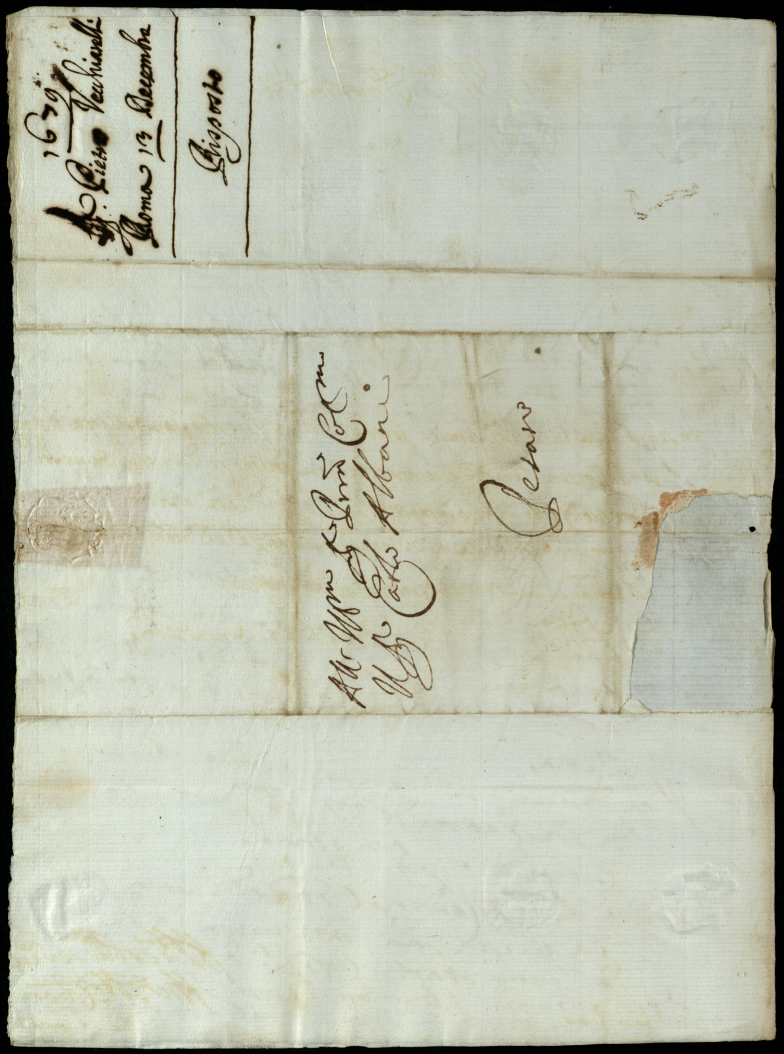 1679
Sr. Pietro Vecchiarelli
Roma 13 Decembre
Risposto
All' Illmo Sr. et Pron Colmo
Il Sr. Carlo Albani
Pesaro